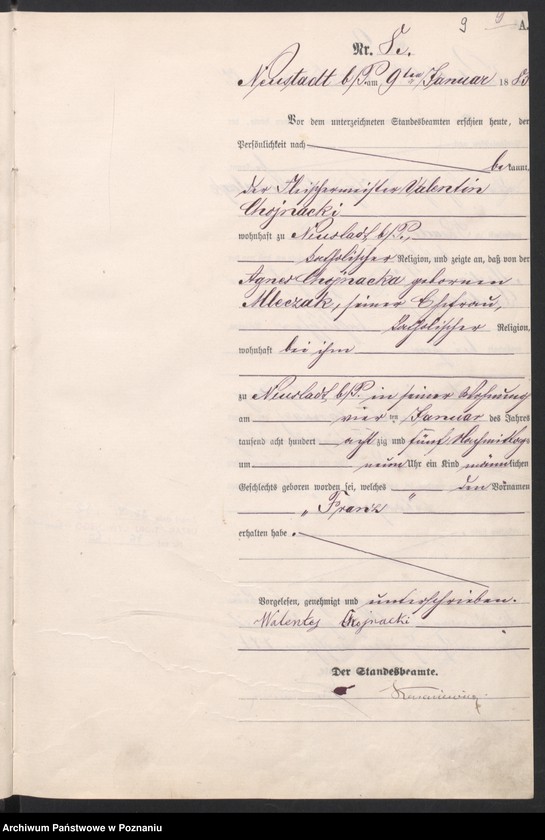 9 9 A.
Nr. 8.
Neustadt b/P. am 9ten Januar 1885
Vor dem unterzeichneten Standesbeamten erschien heute, der
Persönlichkeit nach
bekannt,
der Fleischermeister Valentin
Chojnacki
wohnhaft zu Neustadt b/P.,
katholischer Religion, und zeigte an, daß von der
Agnes Chojnacka geborenen
Mleczak, seiner Ehefrau,
katholischer Religion,
wohnhaft bei ihm
zu Neustadt b/P. in seiner Wohnung
am vierten Januar des Jahres
tausend acht hundert achtzig und fünf Nachmittags
um neun Uhr ein Kind männlichen
Geschlechts geboren worden sei, welches den Vornamen
„Franz"
erhalten habe.
Vorgelesen, genehmigt und unterschrieben.
Walenty Chojnacki
Der Standesbeamte.
Archiwum Państwowe w Poznaniu